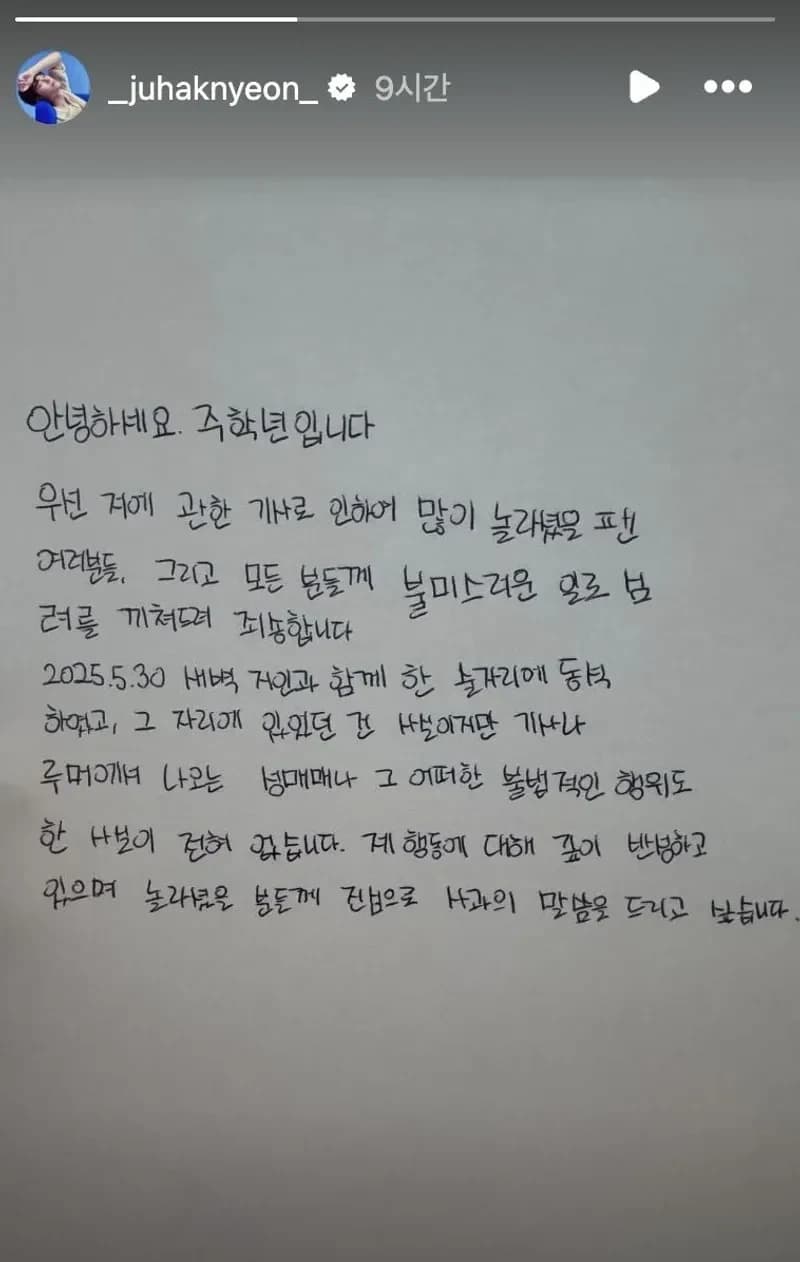 _juhaknyeon_ 9시간
안녕하세요. 주학년입니다
우선 저에 관한 기사로 인하여 많이 놀라셨을 팬
여러분들, 그리고 모든 분들께 불미스러운 일로 심
려를 끼쳐드려 죄송합니다
2025.5.30 새벽 지인과 함께 한 술자리에 동석
하였고, 그 자리에 있었던 건 사실이지만 기사나
루머에서 나오는 성매매나 그 어떠한 불법적인 행위도
한 사실이 전혀 없습니다. 제 행동에 대해 깊이 반성하고
있으며 놀라셨을 분들께 진심으로 사과의 말씀을 드리고 싶습니다.